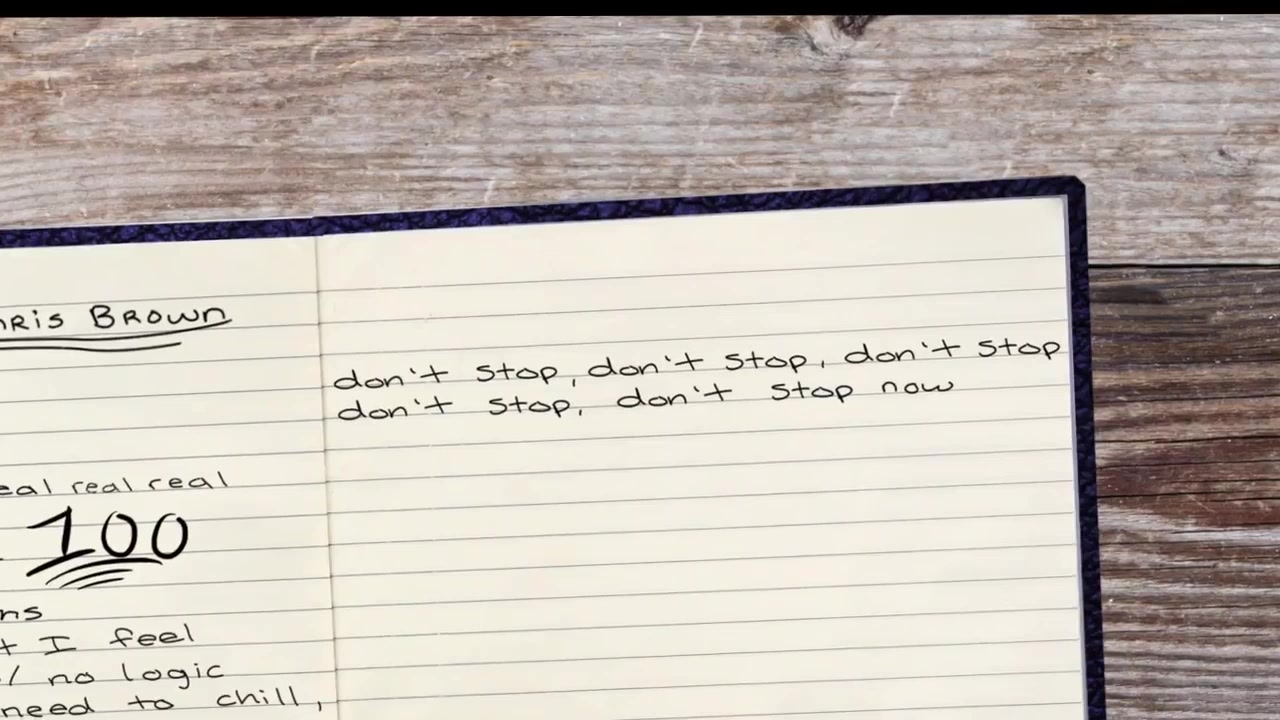 Brown
real real
100
I feel
no logic
need to chill,
don't stop, don't stop, don't stop
don't stop, don't stop now